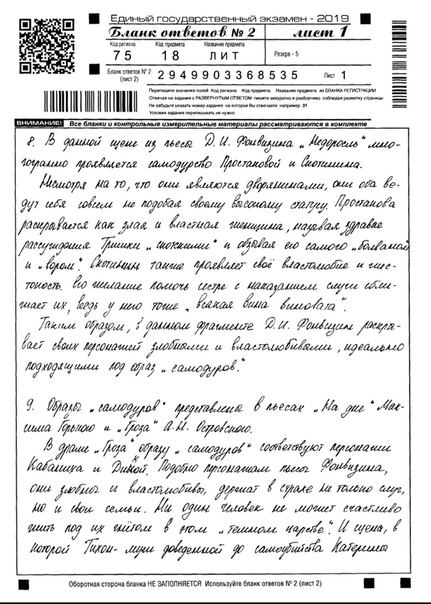 Единый государственный экзамен - 2019
Бланк ответов № 2
лист 1
Код региона
Код предмета
Название предмета
75
18
ЛИТ
Резерв - 5
Бланк ответов № 2 (лист 2)
2949903368535
Лист 1
Перепишите значения полей Код региона Код предмета Название предмета из БЛАНКА РЕГИСТРАЦИИ
Отвечая на задания с РАЗВЕРНУТЫМ ОТВЕТОМ пишите аккуратно и разборчиво соблюдая разметку страницы
Не забудьте указать номер задания на которое Вы отвечаете например 31
Условия задания переписывать не нужно
ВНИМАНИЕ! Все бланки и контрольные измерительные материалы рассматриваются в комплекте
8. В данной сцене из пьесы Д.И. Фонвизина „Недоросль" мно-
гогранно проявляется самодурство Простаковой и Скотинина.
Несмотря на то, что они являются дворянинами, они оба ве-
дут себя совсем не подобая своему высокому статусу. Простакова
раскрывается как злая и властная женщина, называя здравые
рассуждения Тришки „скотскими" и обзывая его самого „болваном"
и „вором". Скотинин также проявляет своё властолюбие и жес-
токость. Его желание помочь сестре с наказанием слуги сбли-
жает их, ведь у него тоже „всякая вина виновата".
Таким образом, в данном фрагменте Д.И. Фонвизин раскры-
вает своих персонажей злобными и властолюбивыми, идеально
подходящими под образ „самодуров".
9. Образы „самодуров" представлены в пьесах „На дне" Мак-
сима Горького и „Гроза" А.Н. Островского.
В драме „Гроза" образу „самодуров" соответствуют персонажи
Кабаниха и Дикой. Подобно персонажам пьесы Фонвизина,
они злобны и властолюбивы, держат в страхе не только слуг,
но и свои семьи. Ни один человек не может счастливо
жить под их гнётом в этом „темном царстве". И сцена, в
которой Тихон
доведенной до самоубийства Катерины
Оборотная сторона бланка НЕ ЗАПОЛНЯЕТСЯ Используйте бланк ответов № 2 (лист 2)